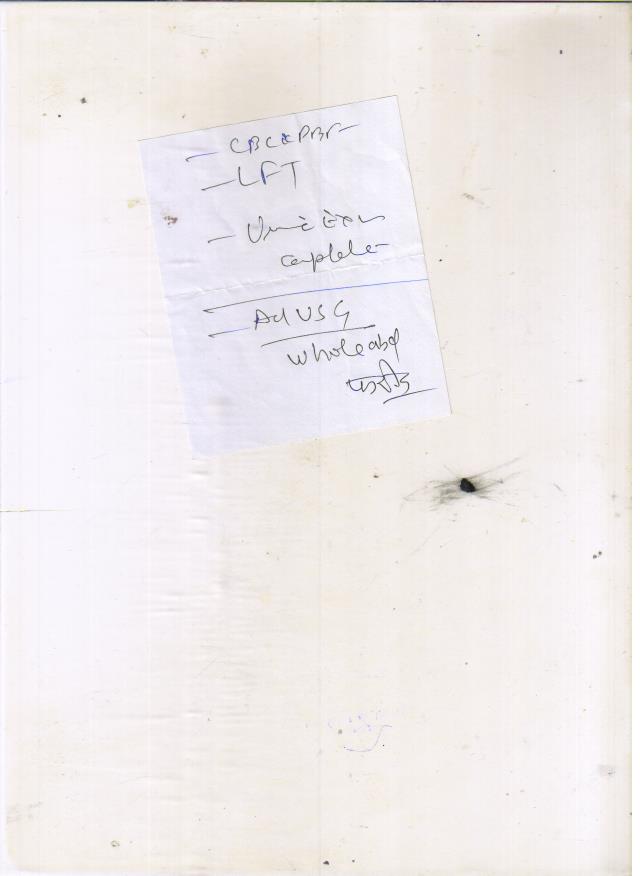 - CBC & PBF
- LFT
- Urine Exam
complete
- Ad USG
whole abd